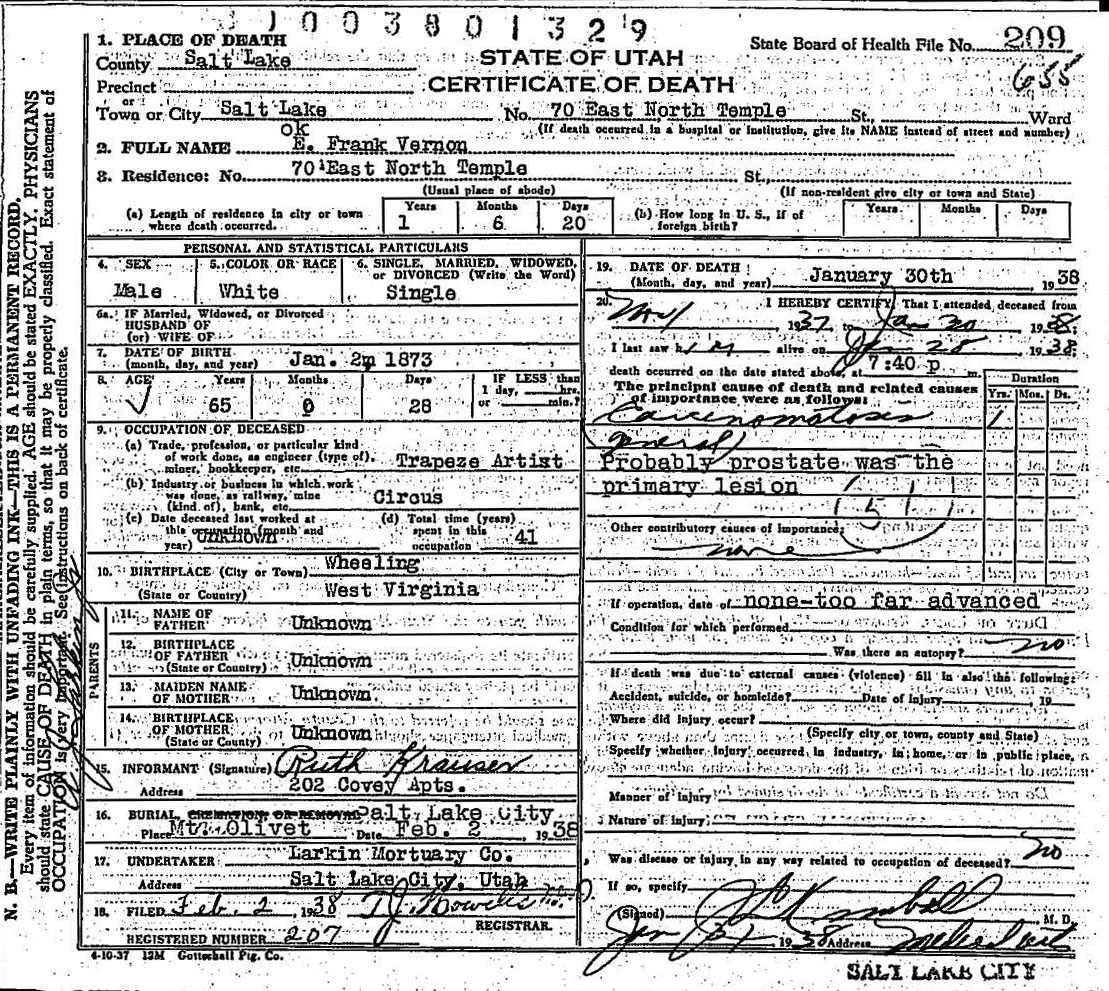 1003801329
State Board of Health File No. 209
655
1. PLACE OF DEATH
County Salt Lake
STATE OF UTAH
Precinct
CERTIFICATE OF DEATH
or
Town or City Salt Lake No. 70 East North Temple St., Ward
(If death occurred in a hospital or institution, give its NAME instead of street and number)
ok
2. FULL NAME E. Frank Vernon
3. Residence: No. 70 East North Temple St.,
(Usual place of abode) (If non-resident give city or town and State)
(a) Length of residence in city or town where death occurred. Years 1 Months 6 Days 20
(b) How long in U. S., if of foreign birth? Years Months Days
PERSONAL AND STATISTICAL PARTICULARS
4. SEX Male
5. COLOR OR RACE White
6. SINGLE, MARRIED, WIDOWED, or DIVORCED (Write the Word) Single
6a. IF Married, Widowed, or Divorced
HUSBAND OF
(or) WIFE OF
7. DATE OF BIRTH
(month, day, and year) Jan. 2, 1873
8. AGE Years 65 Months 0 Days 28
IF LESS than 1 day, hrs. or min.?
9. OCCUPATION OF DECEASED
(a) Trade, profession, or particular kind
of work done, as engineer (type of),
miner, bookkeeper, etc. Trapeze Artist
(b) Industry or business in which work
was done, as railway, mine
(kind of), bank, etc. Circus
(c) Date deceased last worked at
this occupation (month and
year) Unknown
(d) Total time (years)
spent in this
occupation 41
10. BIRTHPLACE (City or Town) Wheeling
(State or Country) West Virginia
PARENTS
11. NAME OF
FATHER Unknown
12. BIRTHPLACE
OF FATHER
(State or Country) Unknown
13. MAIDEN NAME
OF MOTHER Unknown
14. BIRTHPLACE
OF MOTHER
(State or County) Unknown
15. INFORMANT (Signature) Ruth Krauser
Address 202 Covey Apts.
16. BURIAL, CREMATION, OR REMOVAL Salt Lake City
Place Mt. Olivet Date Feb. 2 1938
17. UNDERTAKER Larkin Mortuary Co.
Address Salt Lake City, Utah
18. FILED Feb. 2, 1938 T.J. Howells M.D.
REGISTRAR.
REGISTERED NUMBER 207
4-10-37 12M Gottschall Ptg. Co.
19. DATE OF DEATH
(Month, day, and year) January 30th 1938
20. I HEREBY CERTIFY, That I attended deceased from
1937 to Jan 30 1938;
I last saw him alive on Jan 28 1938;
death occurred on the date stated above, at 7:40 p m.
The principal cause of death and related causes
of importance were as follows:
Duration
Yrs. Mos. Ds.
Carcinomatosis 1
general)
Probably prostate was the
primary lesion
51
Other contributory causes of importance:
none
If operation, date of none-too far advanced
Condition for which performed
Was there an autopsy? no
If death was due to external causes (violence) fill in also the following:
Accident, suicide, or homicide? Date of injury 19
Where did injury occur?
(Specify city or town, county and State)
Specify whether injury occurred in industry, in home, or in public place,
Manner of injury
Nature of injury
Was disease or injury in any way related to occupation of deceased? no
If so, specify
(Signed) Kimball M. D.
Jan 31 1938 Address
SALT LAKE CITY
N. B.—WRITE PLAINLY WITH UNFADING INK—THIS IS A PERMANENT RECORD.
Every item of information should be carefully supplied. AGE should be stated EXACTLY. PHYSICIANS
should state CAUSE OF DEATH in plain terms, so that it may be properly classified. Exact statement of
OCCUPATION is very important. See instructions on back of certificate.